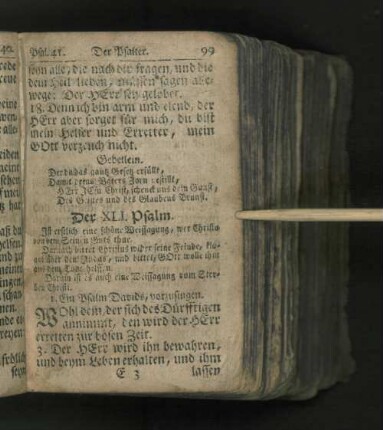 Psl. 41. Der Psalter. 99
seyn alle, die nach dir fragen, und die
dein Heil lieben, müssen sagen alle-
wege: Der HErr sey gelobet.
18. Denn ich bin arm und elend, der
HErr aber sorget für mich, du bist
mein Helfer und Erretter, mein
GOtt verzeuch nicht.
Gebetlein.
Der du das gantz Gesetz erfüllt,
Damit deins Vaters Zorn gestillt,
HErr JEsu Christ, schenck uns dein Gunst,
Des Geistes und des Glaubens Brunst.
Der XLI. Psalm.
Ist erstlich eine schöne Weissagung, wer Christo
von den Seinen Guts thue.
Darnach bittet Christus wider seine Feinde,
über den Judas, und bittet, GOtt wolle ihm
aus dem Tode helffen.
Darum ist es auch eine Weissagung vom
Christi.
1. Ein Psalm Davids, vorzusingen.
Wohl dem, der sich des Dürfftigen
annimmt, den wird der HErr
erretten zur bösen Zeit.
3. Der HErr wird ihn bewahren,
und beym Leben erhalten, und ihm
E 3 lassen